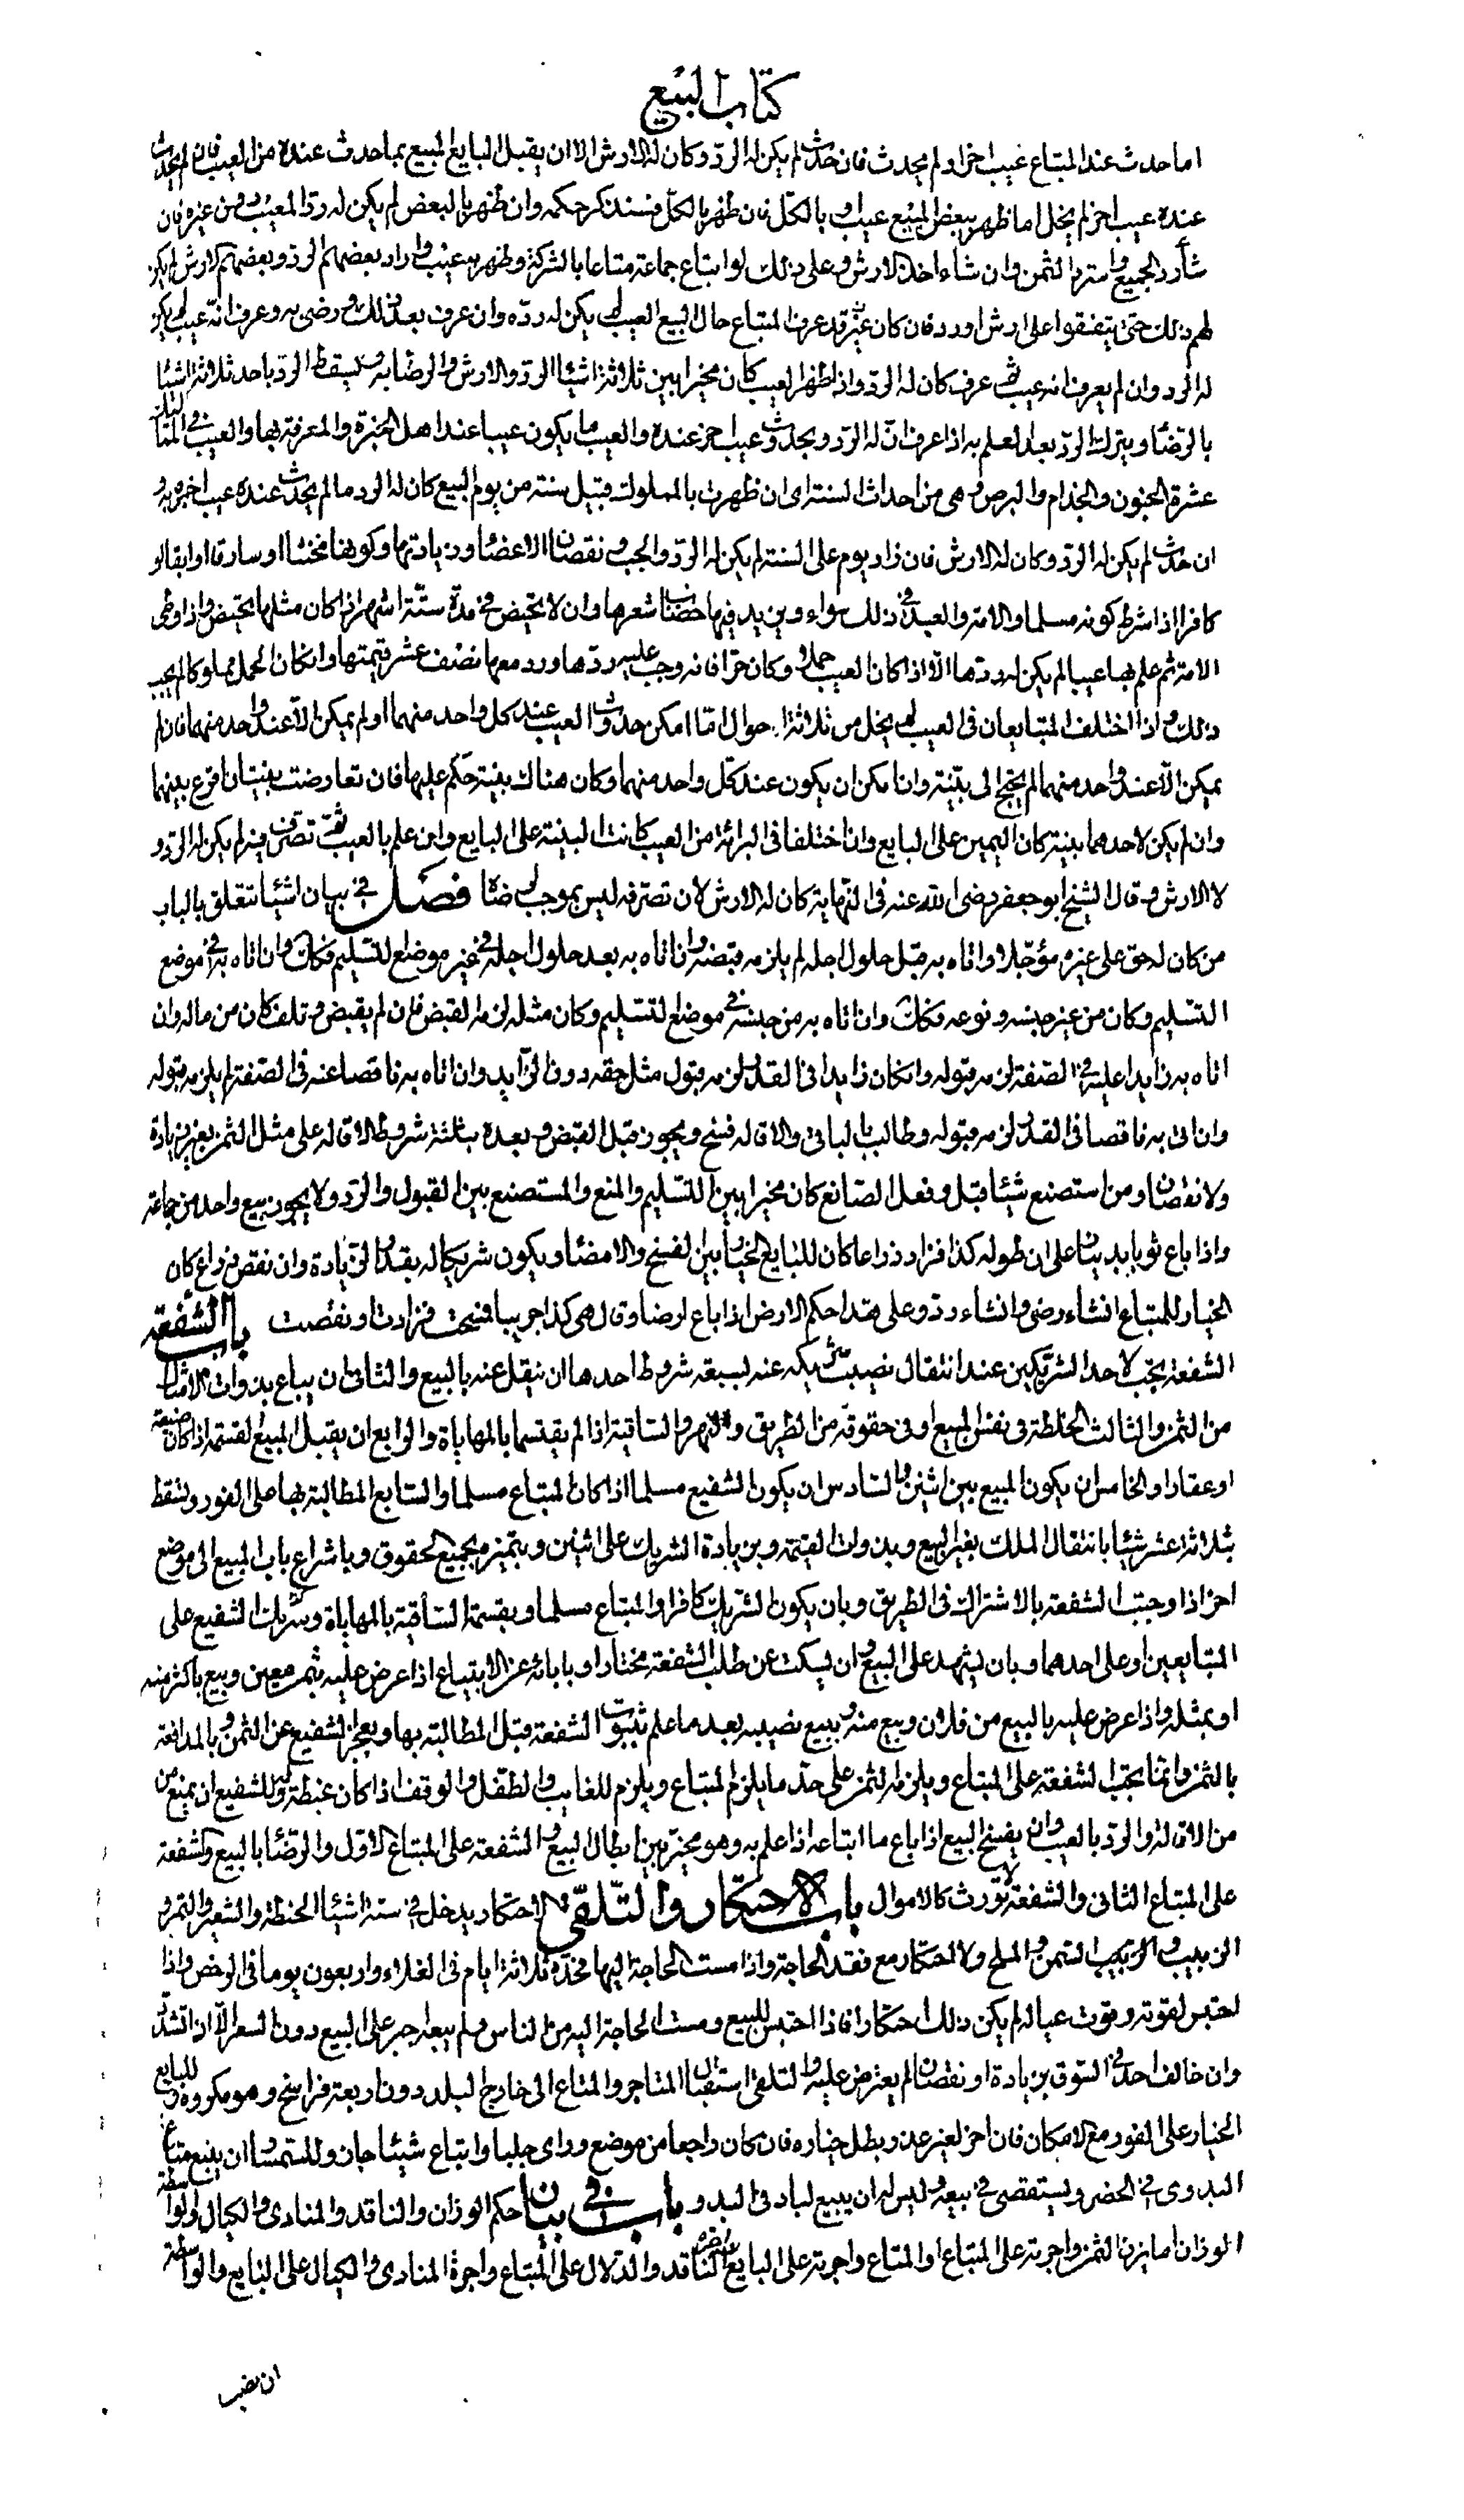 كتاب البيع
اما حدث عند المبتاع عيب اخر او لم يحدث فان حدث لم يكن له الرد وكان له الارش الا ان يقبل البايع المبيع بما حدث عنده من العيب فان لم يحدث
عنده عيب اخر لم يخل اما ظهر ببعض المبيع عيب او بالكل فان ظهر بالكل فسنذكر حكمه وان ظهر بالبعض لم يكن له رد المعيب دون غيره فان
شاء رد الجميع واسترد الثمن وان شاء اخذ الارش وعلى ذلك لو ابتاع جماعة متاعا بالشركة وظهر به عيب واراد بعضهم الرد وبعضهم الارش لم يكن
لهم ذلك حتى يتفقوا على ارش او رد فان كان قد عرف المبتاع حال البيع العيب لم يكن له رده وان عرف بعد ذلك ورضى به وعرف انه عيب لم يكن
له الرد وان لم يعرف انه عيب ثم عرف كان له الرد واذا ظهر العيب كان مخيرا بين ثلاثة اشيا الرد والارش والرضا به ويسقط الرد باحد ثلاثة اشيا
بالرضا وبترك الرد بعد العلم به اذا عرف ان له الرد وبحدوث عيب اخر عنده والعيب ما يكون عيبا عند اهل الخبرة والمعرفة بها والعيب في
عشرة الجنون والجذام والبرص وهى من احداث السنة اى ان ظهرت بالمملوك قبل سنة من يوم البيع كان له الرد ما لم يحدث عنده عيب اخر به و
ان حدث لم يكن له الرد وكان له الارش فان زاد يوم على السنة لم يكن له الرد والجب ونقصان الاعضا وزيادتها وكونها مخنثا او سارقا او ابقا او
كافرا اذا شرط كونه مسلما والامة والعبد في ذلك سواء ويزيد فيها شعرها وان لا تحيض في مدة ستة اشهر اذا كان مثلها تحيض واذا وطى
الامة ثم علم بها عيبا لم يكن له ردها الا اذا كان العيب حملا وكان حرا فانه وجب عليه ردها ورد معها نصف عشر قيمتها وان كان الحمل مملوكا لم يجب
ذلك واذا اختلف المتبايعان في العيب لم يخل من ثلاثة احوال اما امكن حدوث العيب عند كل واحد منهما او لم يمكن الا عند واحد منهما فان لم
يمكن الا عند واحد منهما لم يحتج الى بينة وان امكن ان يكون عند كل واحد منهما وكان هناك بينة حكم عليها فان تعارضت بينتان اقرع بينهما
وان لم يكن لاحدهما بينة كان اليمين على البايع وان اختلفا في البرائة من العيب كانت البينة على البايع وان علم بالعيب ثم تصرف فيه لم يكن له الرد و
لا الارش وقال الشيخ ابو جعفر رضى الله عنه في النهاية كان له الارش لان تصرفه ليس بموجب لرضاه فصل في بيان اشيا تتعلق بالباب
من كان له حق على غيره مؤجلا واتاه به قبل حلول اجله لم يلزمه قبضه وان اتاه به بعد حلول اجله في غير موضع التسليم فكذلك وان اتاه به في موضع
التسليم وكان من غير جنسه ونوعه فكذلك وان اتاه به من جنسه في موضع التسليم وكان مثله لزمه القبض فان لم يقبض وتلف كان من ماله وان
اتاه به زايدا عليه في الصفة لزمه قبوله وان كان زايدا في القدر لزمه قبول مثل حقه دون الزايد وان اتاه به ناقصا عنه في الصفة لم يلزمه قبوله
وان اتى به ناقصا في القدر لزمه قبوله وطالب بالباقى والاقالة فسخ ويجوز قبل القبض وبعده بثلثة شروط الاقالة على مثل الثمن بغير زيادة
ولا نقصان ومن استصنع شيئا قبل وفعل الصانع كان مخيرا بين التسليم والمنع والمستصنع بين القبول والرد ولا يجوز بيع واحد من جماعة
واذا باع ثوبا بدينار على ان طوله كذا فزاد ذراعا كان للبايع الخيار بين الفسخ والامضا ويكون شريكا له بقدر الزيادة وان نقص ذراع كان
الخيار للمبتاع ان شاء رضى وان شاء رد وعلى هذا حكم الارض اذا باع ارضا وقال هى كذا جريبا فمسحت فزادت او نقصت باب الشفعة
الشفعة تجب لاحد الشريكين عند انتقال نصيب شريكه عنه لسبعة شروط احدها ان ينقل عنه بالبيع والثانى ان يباع بذوات الامثال
من الثمن والثالث الخلطة في نفس المبيع او في حقوقه من الطريق والنهر والساقية اذا لم يقتسما بالمهاياة والرابع ان يقبل المبيع القسمة اذا كان ضيعة
او عقارا والخامس ان يكون المبيع بين اثنين والسادس ان يكون الشفيع مسلما اذا كان المبتاع مسلما والسابع المطالبة بها على الفور وتسقط
بثلاثة عشر شيئا بانتقال الملك بغير البيع وبذوات القيمة وبزيادة الشريك على اثنين وبتميزه بجميع الحقوق وباشراع باب المبيع الى موضع
اخر اذا وجبت الشفعة بالاشتراك في الطريق وبان يكون الشريك كافرا والمبتاع مسلما وبقسمة الساقية بالمهاياة الشفيع على
المتبايعين او على احدهما وبان يشهد على البيع وان يسكت عن طلب الشفعة مختارا وبابائه عن الابتياع اذا عرض عليه بثمن معين وبيع باكثر منه
او بمثله واذا عرض عليه بالبيع من فلان وبيع منه وببيع نصيبه بعد ما علم ثبوت الشفعة قبل المطالبة بها وبعجز الشفيع عن الثمن وبالمدافعة
بالثمن وانما تجب الشفعة على المبتاع ويلزمه الثمن على حد ما يلزم المبتاع ويلزم للغايب والطفل والوقف اذا كان غبطة وللشفيع ان يمنع من
من الاقالة والرد بالعيب وان يفسخ البيع اذا باع ما ابتاعه اذا علم به وهو مخير بين ابطال البيع والشفعة على المبتاع الاول والرضا بالبيع والشفعة
على المبتاع الثانى والشفعة لا تورث كالاموال باب الاحتكار والتلقى الاحتكار يدخل في ستة اشيا الحنطة والشعير والتمر و
الزبيب والسمن والملح ولا احتكار مع فقد الحاجة واذا مست الحاجة اليها فحده ثلاثة ايام في الغلاء واربعون يوما في الرخص واذا
احتبس لقوته وقوت عياله لم يكن ذلك احتكارا فاذا احتبس للبيع ومست الحاجة اليه من الناس ولم يبعه اجبر على البيع دون السعر الا اذا تشدد
وان خالف احد في السوق بزيادة او نقصان لم يعترض عليه والتلقى استقبال المتاجر والمتاع الى خارج البلد دون اربعة فراسخ وهو مكروه وللبايع
الخيار على الفور مع الامكان فان اخر لغير عذر بطل خياره فان كان راجعا من موضع وراى جلبا وابتاع شيئا جاز وللسمسار ان يبيع متاع
البدوى في الحضر ويستقصى في بيعه وليس له ان يبيع لباد في البدو باب في بيان حكم الوزان والناقد والمنادى والكيال والواسطة
الوزان اما يزن الثمن واجرته على المبتاع او المتاع واجرته على البايع والناقد والدلال على المبتاع واجرة المنادى والكيال على البايع والواسطة
ان نصب